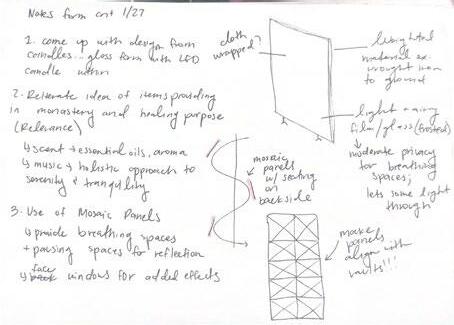 Notes from crit 1/27
1. come up with design from
candles... glass form with LED
candle within
2. Reiterate idea of items providing
in monastery and healing purpose
(Relevance)
↳ scent + essential oils, aroma
↳ music + holistic approach to
serenity + tranquility
3. Use of Mosaic Panels
↳ provide breathing spaces
+ pausing spaces for reflection
↳ face windows for added effects
cloth
wrapped?
mosaic
panels
w/ seating
on
backside
material ex.
wrought iron
to ground
light
film/glass (frosted)
↳ moderate privacy
for breathing
spaces;
lets some light
through
make
panels
align with
vaults!!!